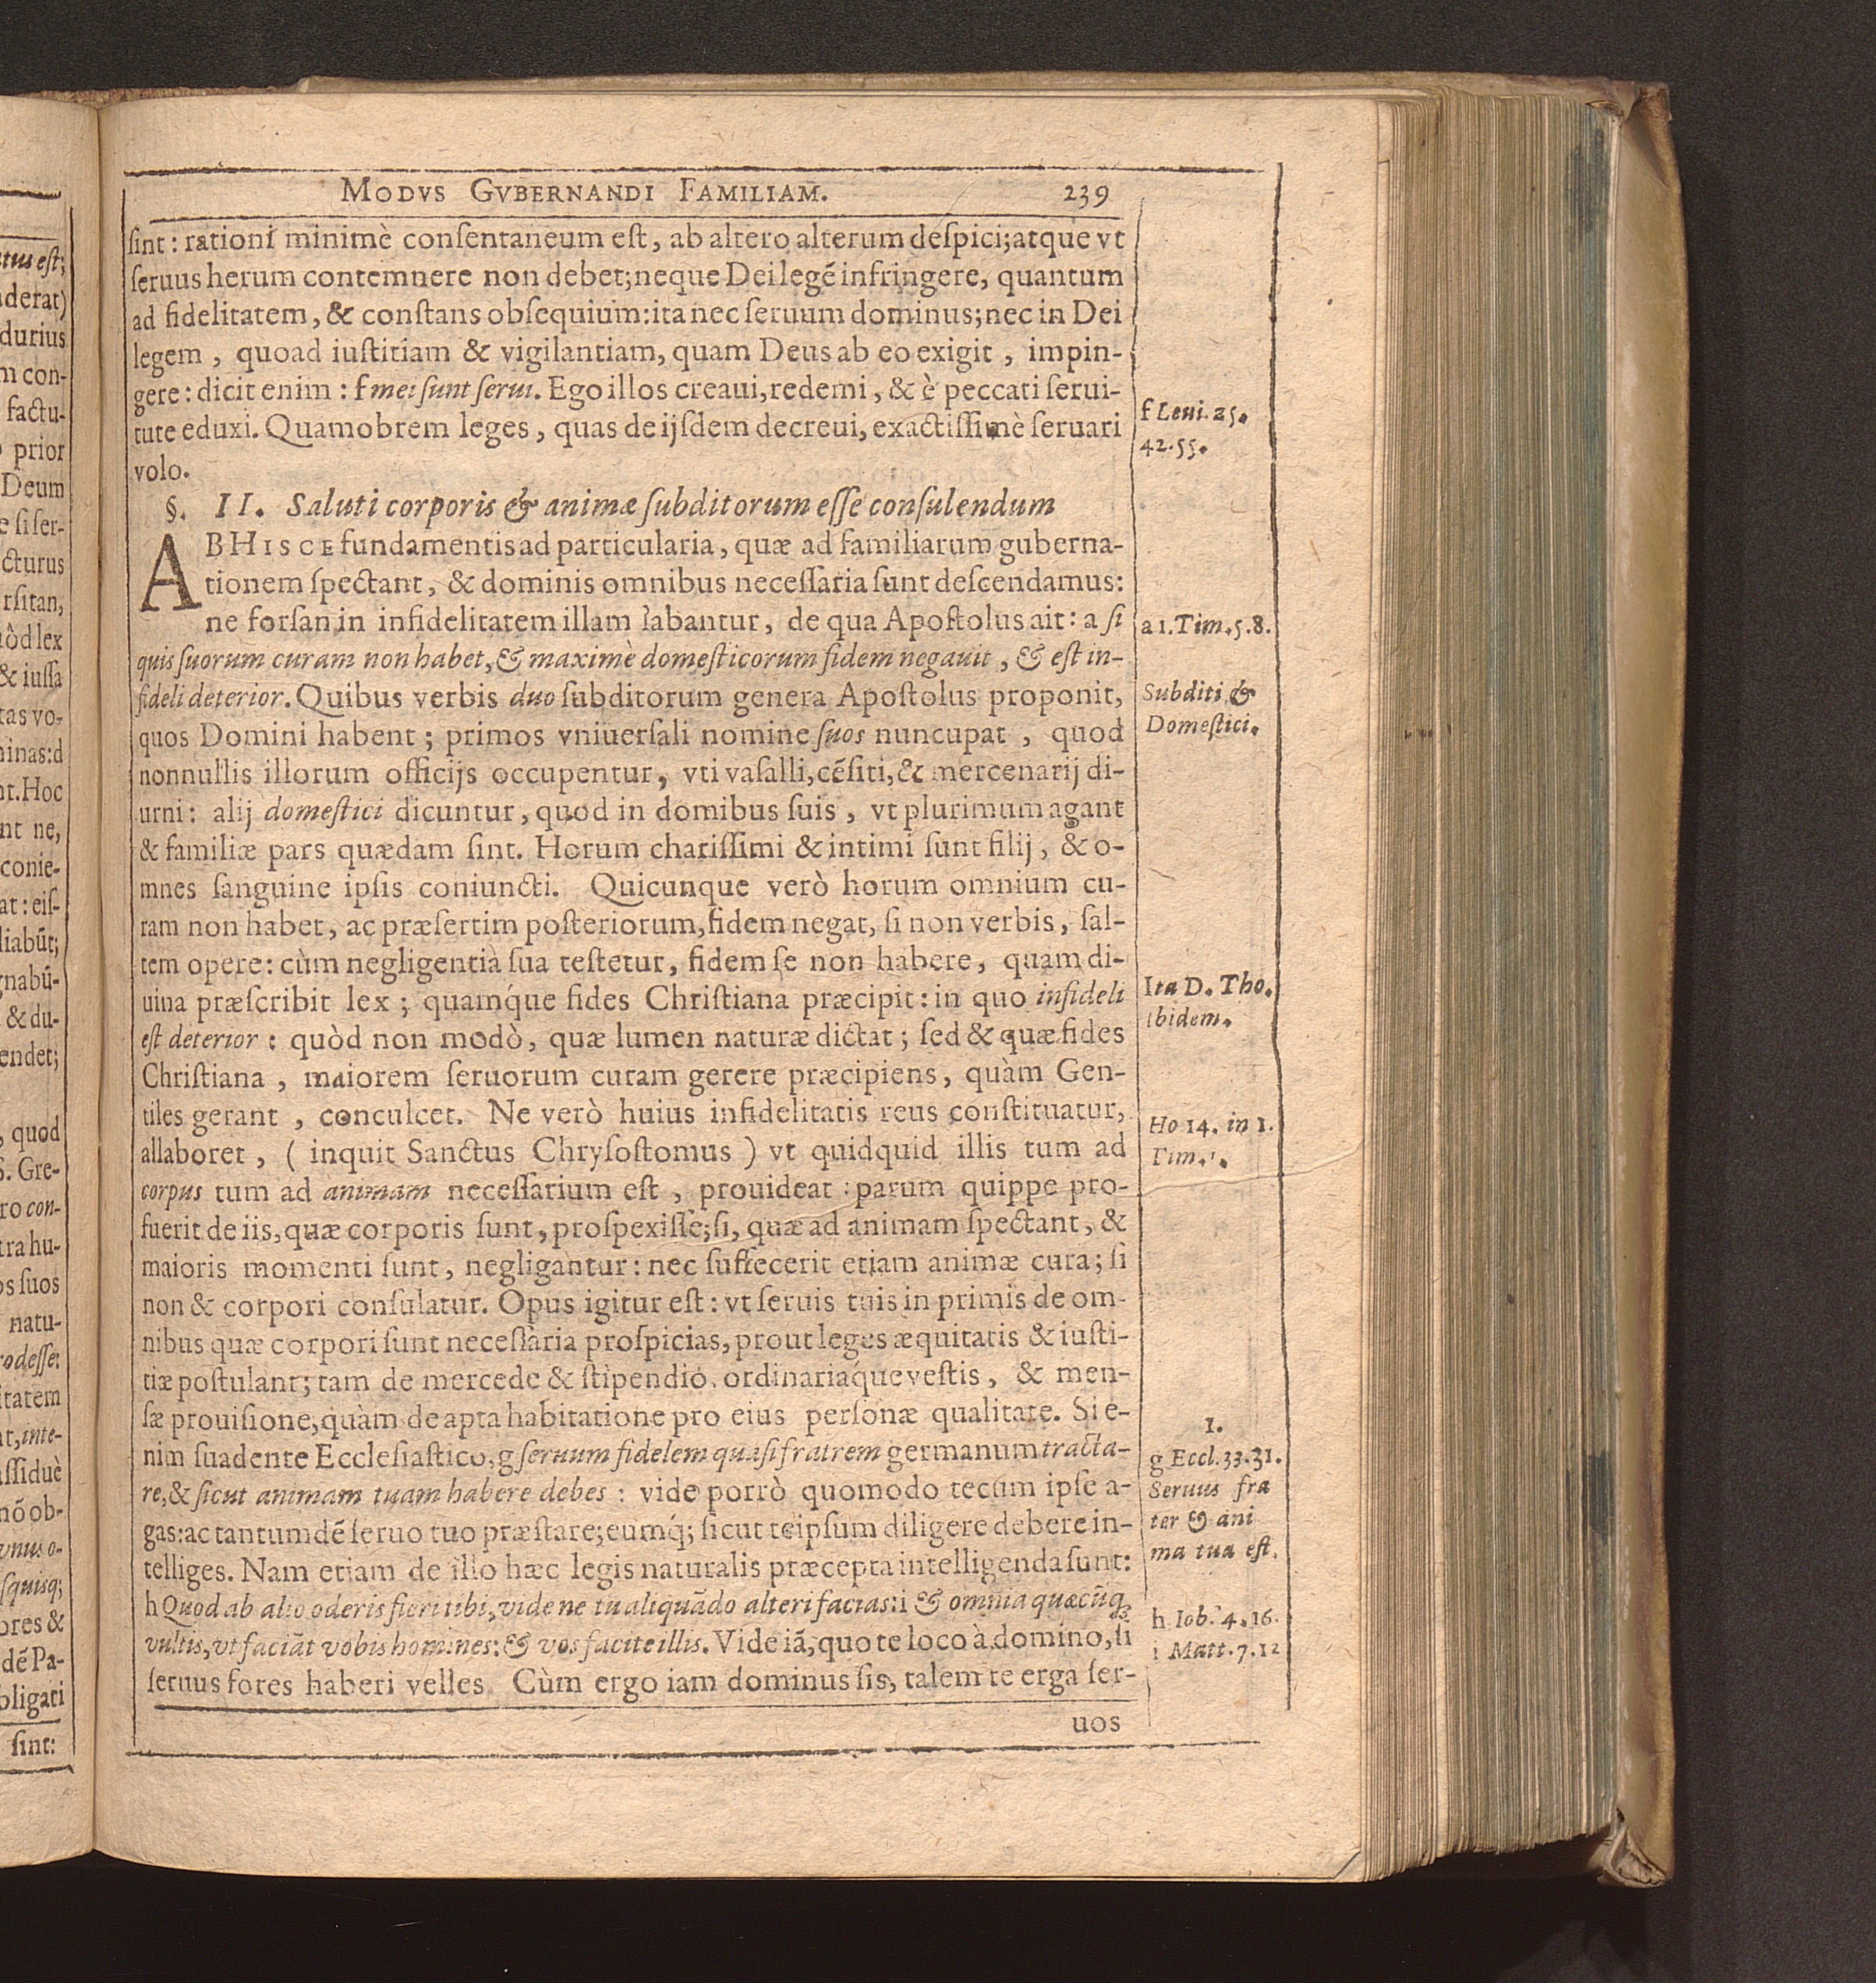 MODVS GVBERNANDI FAMILIAM. 239
ſint: rationi minimè conſentaneum eſt, ab altero alterum deſpici; atque vt
ſeruus herum contemnere non debet; neque Dei legẽ infringere, quantum
ad fidelitatem, & conſtans obſequium: ita nec ſeruum dominus; nec in Dei
legem, quoad iuſtitiam & vigilantiam, quam Deus ab eo exigit, impin-
gere: dicit enim: f mei ſunt ſerui. Ego illos creaui, redemi, & è peccati ſerui-
tute eduxi. Quamobrem leges, quas de ijſdem decreui, exactiſſimè ſeruari
volo.
§. II. Saluti corporis & animæ ſubditorum eſſe conſulendum
AB HISCE fundamentis ad particularia, quæ ad familiarum guberna-
tionem ſpectant, & dominis omnibus neceſſaria ſunt deſcendamus:
ne forſan in infidelitatem illam labantur, de qua Apoſtolus ait: a ſi
quis ſuorum curam non habet, & maximè domeſticorum fidem negauit, & eſt in-
fideli deterior. Quibus verbis duo ſubditorum genera Apoſtolus proponit,
quos Domini habent; primos vniuerſali nomine ſuos nuncupat, quod
nonnullis illorum officijs occupentur, vti vaſalli, cẽſiti, & mercenarij di-
urni: alij domeſtici dicuntur, quod in domibus ſuis, vt plurimum agant
& familiæ pars quædam ſint. Horum chariſſimi & intimi ſunt filij, & o-
mnes ſanguine ipſis coniuncti. Quicunque verò horum omnium cu-
ram non habet, ac præſertim poſteriorum, fidem negat, ſi non verbis, ſal-
tem opere: cùm negligentia ſua teſtetur, fidem ſe non habere, quam di-
uina præſcribit lex; quamq́ue fides Chriſtiana præcipit: in quo infideli
eſt deterior: quòd non modò, quæ lumen naturæ dictat; ſed & quæ fides
Chriſtiana, maiorem ſeruorum curam gerere præcipiens, quàm Gen-
tiles gerant, conculcet. Ne verò huius infidelitatis reus conſtituatur,
allaboret, (inquit Sanctus Chryſoſtomus) vt quidquid illis tum ad
corpus tum ad animam neceſſarium eſt, prouideat: parum quippe pro-
fuerit de iis, quæ corporis ſunt, proſpexiſſe; ſi, quæ ad animam ſpectant, &
maioris momenti ſunt, negligantur: nec ſuffecerit etiam animæ cura; ſi
non & corpori conſulatur. Opus igitur eſt: vt ſeruis tuis in primis de om-
nibus quæ corpori ſunt neceſſaria proſpicias, prout leges æquitatis & iuſti-
tiæ poſtulant; tam de mercede & ſtipendio, ordinariaq́ue veſtis, & men-
ſæ prouiſione, quàm de apta habitatione pro eius perſonæ qualitate. Si e-
nim ſuadente Eccleſiaſtico, g ſeruum fidelem quaſi fratrem germanum tracta-
re, & ſicut animam tuam habere debes: vide porrò quomodo tecum ipſe a-
gas: ac tantumdẽ ſeruo tuo præſtare; eumq́; ſicut teipſum diligere debere in-
telliges. Nam etiam de illo hæc legis naturalis præcepta intelligenda ſunt:
h Quod ab alio oderis fieri tibi, vide ne tu aliquãdo alteri facias: i & omnia quæcũq;
vultis, vt faciãt vobis homines: & vos facite illis. Vide iã, quo te loco à domino, ſi
ſeruus fores haberi velles. Cùm ergo iam dominus ſis, talem te erga ſer-
uos
f Leui. 25.
42.55.
a 1. Tim. 5. 8.
Subditi &
Domeſtici.
Ita D. Tho.
ibidem.
Ho 14. in 1.
Tim.
1.
g Eccl. 33.31.
Seruus fra
ter & ani
ma tua eſt.
h Tob. 4. 16.
i Matt. 7. 12
tus eſt;
derat)
durius
m con-
factu-
prior
Deum
e ſi ſer-
cturus
rſitan,
òd lex
& iuſſa
tas vo-
minas: d
nt. Hoc
nt ne,
conie-
at: eiſ-
liabũt;
gnabũ-
& du-
endet;
, quod
S. Gre-
ro con-
tra hu-
os ſuos
natu-
rodeſſe:
itatem
nt, inte-
aſſiduè
nõ ob-
vnus o-
ſquiſq;
ores &
dẽ Pa-
bligati
ſint: